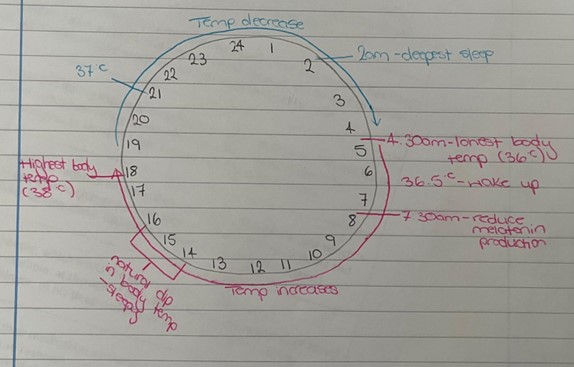 Temp decrease
24 1
23 2
2am-deepest sleep
37°c
22
21 3
20 4
19 5
4.30am-lonest body
temp (36°c)
Highest body
temp
(38°c)
18 6
36.5°c-Wake up
17 7
16 8
7.30am-reduce
melatonin
production
15 9
14 10
13 12 11
natural dip
in body temp
-sleepy
Temp increases